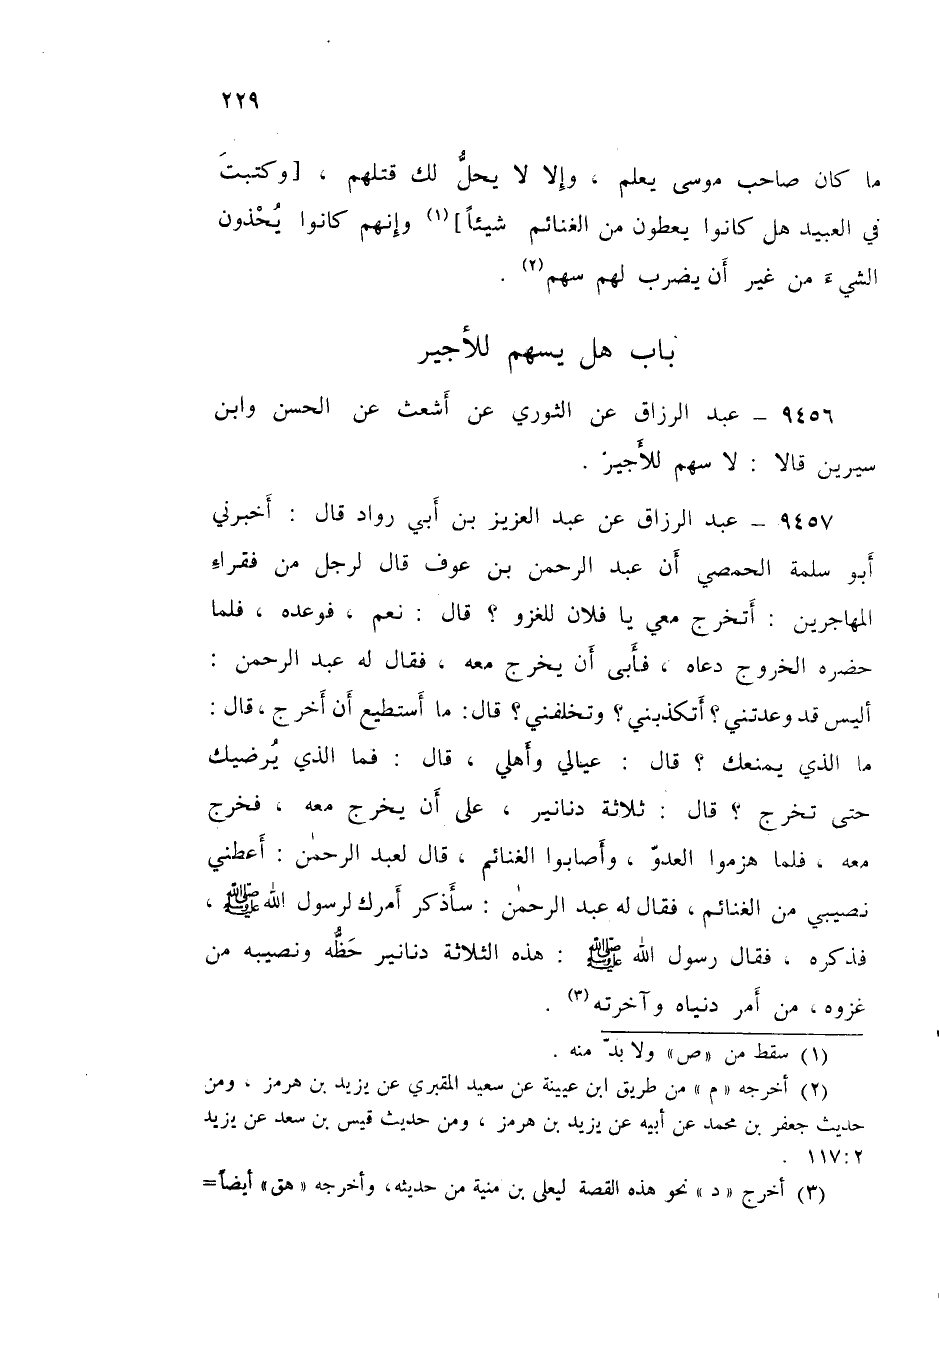 ٢٢٩
ما كان صاحب موسى يعلم ، وإلا لا يحلُّ لك قتلهم ، [وكتبتَ
في العبيد هل كانوا يعطون من الغنائم شيئاً] (١) وإنهم كانوا يُحْذون
الشيءَ من غير أَن يضرب لهم سهم (٢) .
باب هل يسهم للأَجير
٩٤٥٦ – عبد الرزاق عن الثوري عن أَشعث عن الحسن وابن
سيرين قالا : لا سهم للأَجير .
٩٤٥٧ – عبد الرزاق عن عبد العزيز بن أَبي رواد قال : أَخبرني
أَبو سلمة الحمصي أَن عبد الرحمن بن عوف قال لرجل من فقراءِ
المهاجرين : أَتخرج معي يا فلان للغزو ؟ قال : نعم ، فوعده ، فلما
حضره الخروج دعاه ، فأَبى أَن يخرج معه ، فقال له عبد الرحمن :
أَليس قد وعدتني ؟ أَتكذبني ؟ وتخلفني ؟ قال : ما أَستطيع أَن أَخرج ، قال :
ما الذي يمنعك ؟ قال : عيالي وأَهلي ، قال : فما الذي يُرضيك
حتى تخرج ؟ قال : ثلاثة دنانير ، على أَن يخرج معه ، فخرج
معه ، فلما هزموا العدوّ ، وأَصابوا الغنائم ، قال لعبد الرحمٰن : أَعطني
نصيبي من الغنائم ، فقال له عبد الرحمٰن : سأَذكر أَمرك لرسول الله ﷺ ،
فذكره ، فقال رسول الله ﷺ : هذه الثلاثة دنانير حَظُّه ونصيبه من
غزوه ، من أَمر دنياه وآخرته (٣) .
(١) سقط من «ص» ولا بدّ منه .
(٢) أخرجه «م» من طريق ابن عيينة عن سعيد المقبري عن يزيد بن هرمز ، ومن
حديث جعفر بن محمد عن أبيه عن يزيد بن هرمز ، ومن حديث قيس بن سعد عن يزيد
٢ : ١١٧ .
(٣) أخرج «د» نحو هذه القصة ليعلى بن منية من حديثه، وأخرجه «هق» أيضاً=